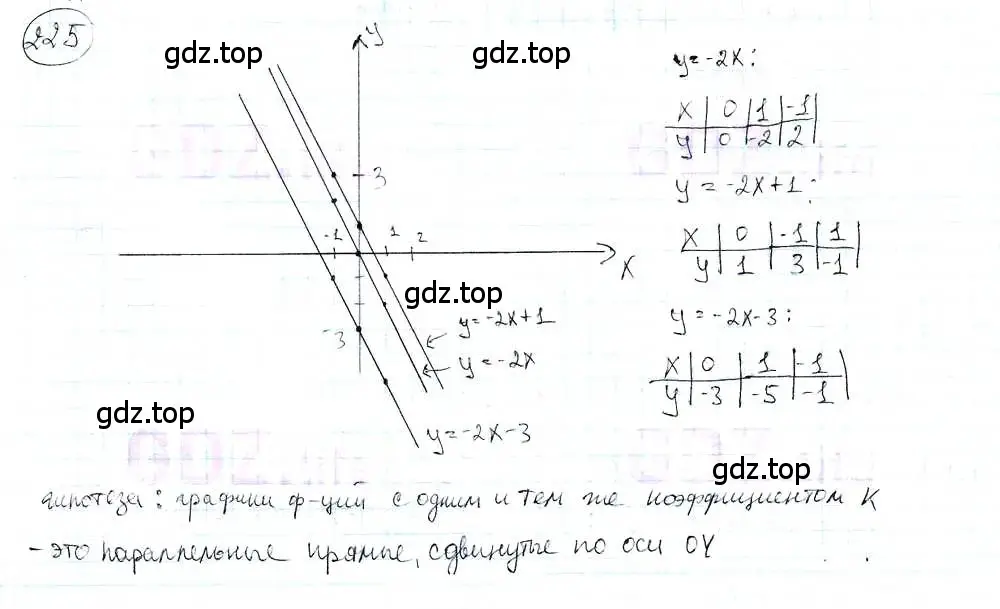 225
gdz.top
gdz.top
y
y = -2x:
x | 0 | 1 | -1
y | 0 | -2 | 2
3
y = -2x+1:
-1 1 2
x
x | 0 | -1 | 1
y | 1 | 3 | -1
gdz.top
y = -2x+1
-3
y = -2x
y = -2x-3:
x | 0 | 1 | -1
y | -3 | -5 | -1
gdz.top
y = -2x-3
gdz.top
гипотеза: графики ф-ций с одним и тем же коэффициентом К
- это параллельные прямые, сдвинутые по оси OY